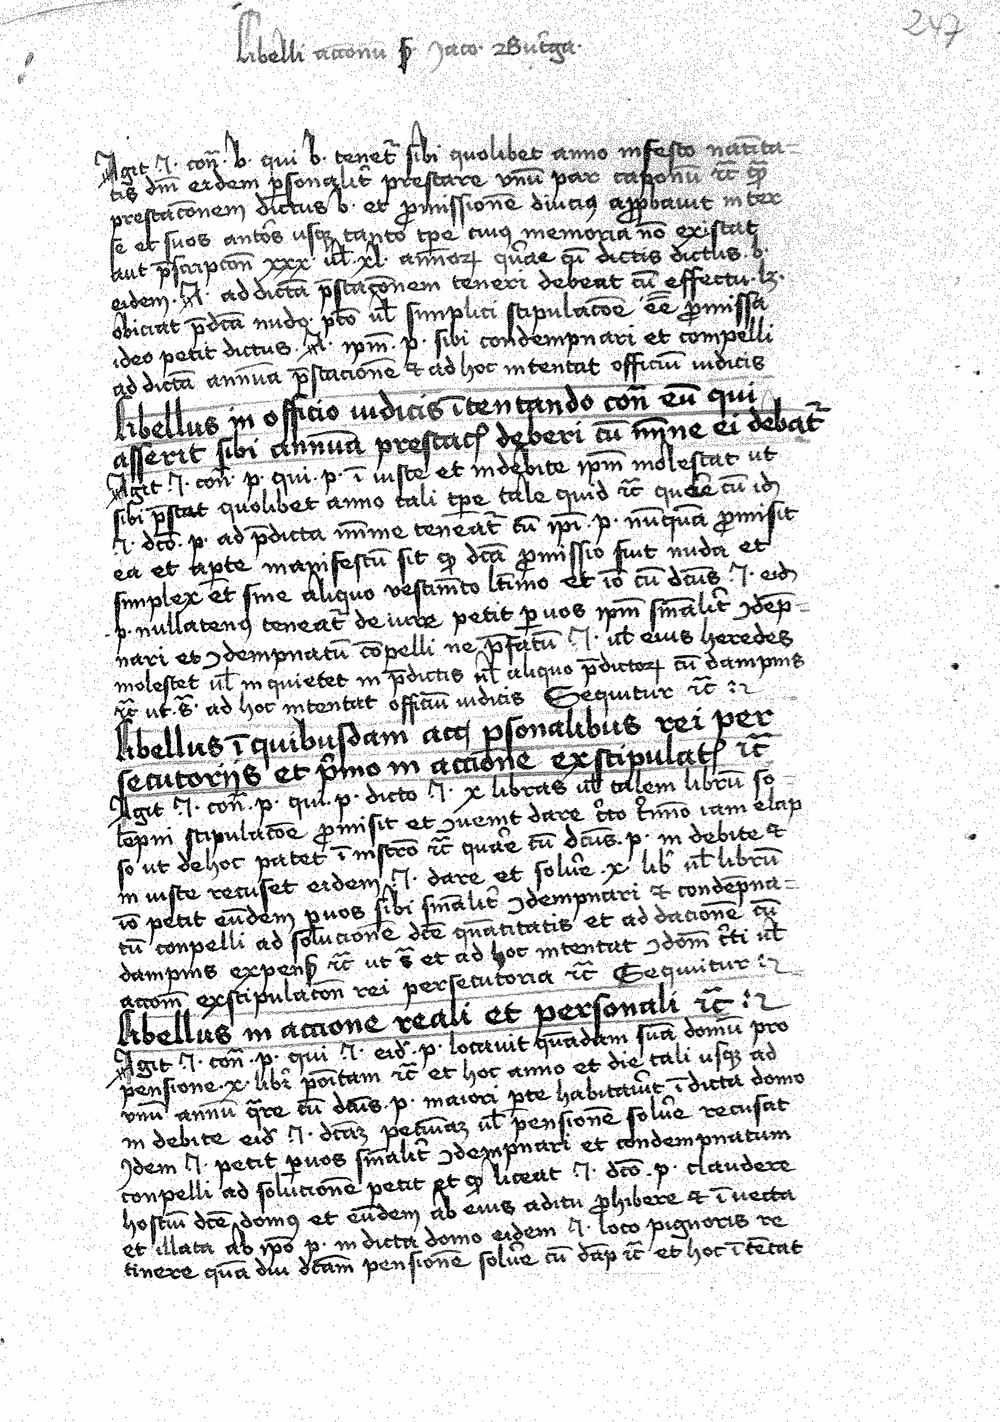 247
Libelli accionū Jaco.
Agit .J. con̄. b. qui b. tenet᷑ sibi quolibet anno in festo natita=
tis dn̄i eidem p̲sonalit᷑ prestare vnū par caponū
prestac̄onem dictus b. et p̲missionē
se et suos usq̄ tanto tp̄e cuiꝯ memoria nō existat
aut p̄scripcōn xxx. ul̄. xl. annoꝝ cū dictus .b.
eidem ad dictā p̄stac̄onem teneri debeat cū effectu. lꝫ.
obiciat p̄dc̄a nudo. pc̄to ul̄ simplici stipulac̄oe ēē p̲missa
ideo petit dictus ip̄m .p. sibi condempnari et compelli
ad dictā annuā p̄stacionē ⁊ ad hoc intentat officiū iudicis
Libellus in officio iudicis ītentando con̄ eū qui
asserit sibi annuā prestac̄ deberi cū mīne ei debat᷑
Agit .J. con̄ .p. qui .p. ī iuste et indebite ip̄m molestat ut
sibi p̄stat quolibet anno tali tp̄e tale quid cū
.J. dc̄o .p. ad p̄dicta mīme teneat᷑ cū ip̄i .p. nūquā p̲misit
ea et ap̲te manifestū sit dc̄a p̲missio fuit nuda et
simplex et sine aliquo vestim̄to et iō cū dc̄us .J. eid̄
.p. nullatenꝯ teneat᷑ de iure petit p̲ vos ip̄m sn̄ialit᷑ ꝯdep̄=
nari et ꝯdempnatū cōpelli ne p̄fatū .J. ul̄ eius heredes
molestet ul̄ inquietet in p̄dictis ul̄ aliquo p̄dictoꝝ cū dampnis
ut .s̄. ad hoc intentat officiū iudicis Sequitur
Libellus ī quibusdam acc̄ p̲sonalibus rei per
secutoriis et p̄mo in accione ex stipulat̄
Agit .J. con̄ .p. qui .p. dicto .J. x libras ul̄ talem librū so=
lēpni stipulac̄oe p̲misit et ꝯuenit dare c̄to t̄mīo iam elap
so ut de hoc patet ī instr̄o quare cū dc̄us .p. indebite ⁊
in iuste recuset eidem .J. dare et solu᷑e .x. lib᷑ ul̄ librū
iō petit eūdem p̲ vos sibi sn̄ialit᷑ ꝯdempnari ⁊ condep̄na=
tū conpelli ad solucionē dc̄e quātitatis et ad dacionē cū
dampnis expens̄ ut s̄ et ad hoc intentat ꝯdom̄ c̄ti ul̄
accom̄ ex stipulacōn rei persecutoria Sequitur
Libellus in accione reali et personali
Agit .J. con̄ .p. qui .J. eid̄ .p. locauit quādam suā domū pro
pensione .x. lib᷑ et hoc anno et die tali usqꝫ ad
vnū annū q̄re cū dc̄us .p. maiori p̲te habitau᷑it ī dicta domo
indebite eid̄ .J. dc̄aꝫ ul̄ pensionē solu᷑e recusat
Jdem .J. petit p̲ vos sn̄ialit᷑ ꝯdempnari et condempnatum
conpelli ad solucionē petit et liceat .J. dc̄o .p. claudere
hostiū dc̄e domꝯ et eūdem ab eius aditu p̲hibere ⁊ ī uecta
et illata ab ip̄o .p. in dicta domo eidem .J. loco pignoris re
tinere quā diu dc̄am pensionē solu᷑e cū dāp et hoc ītētat